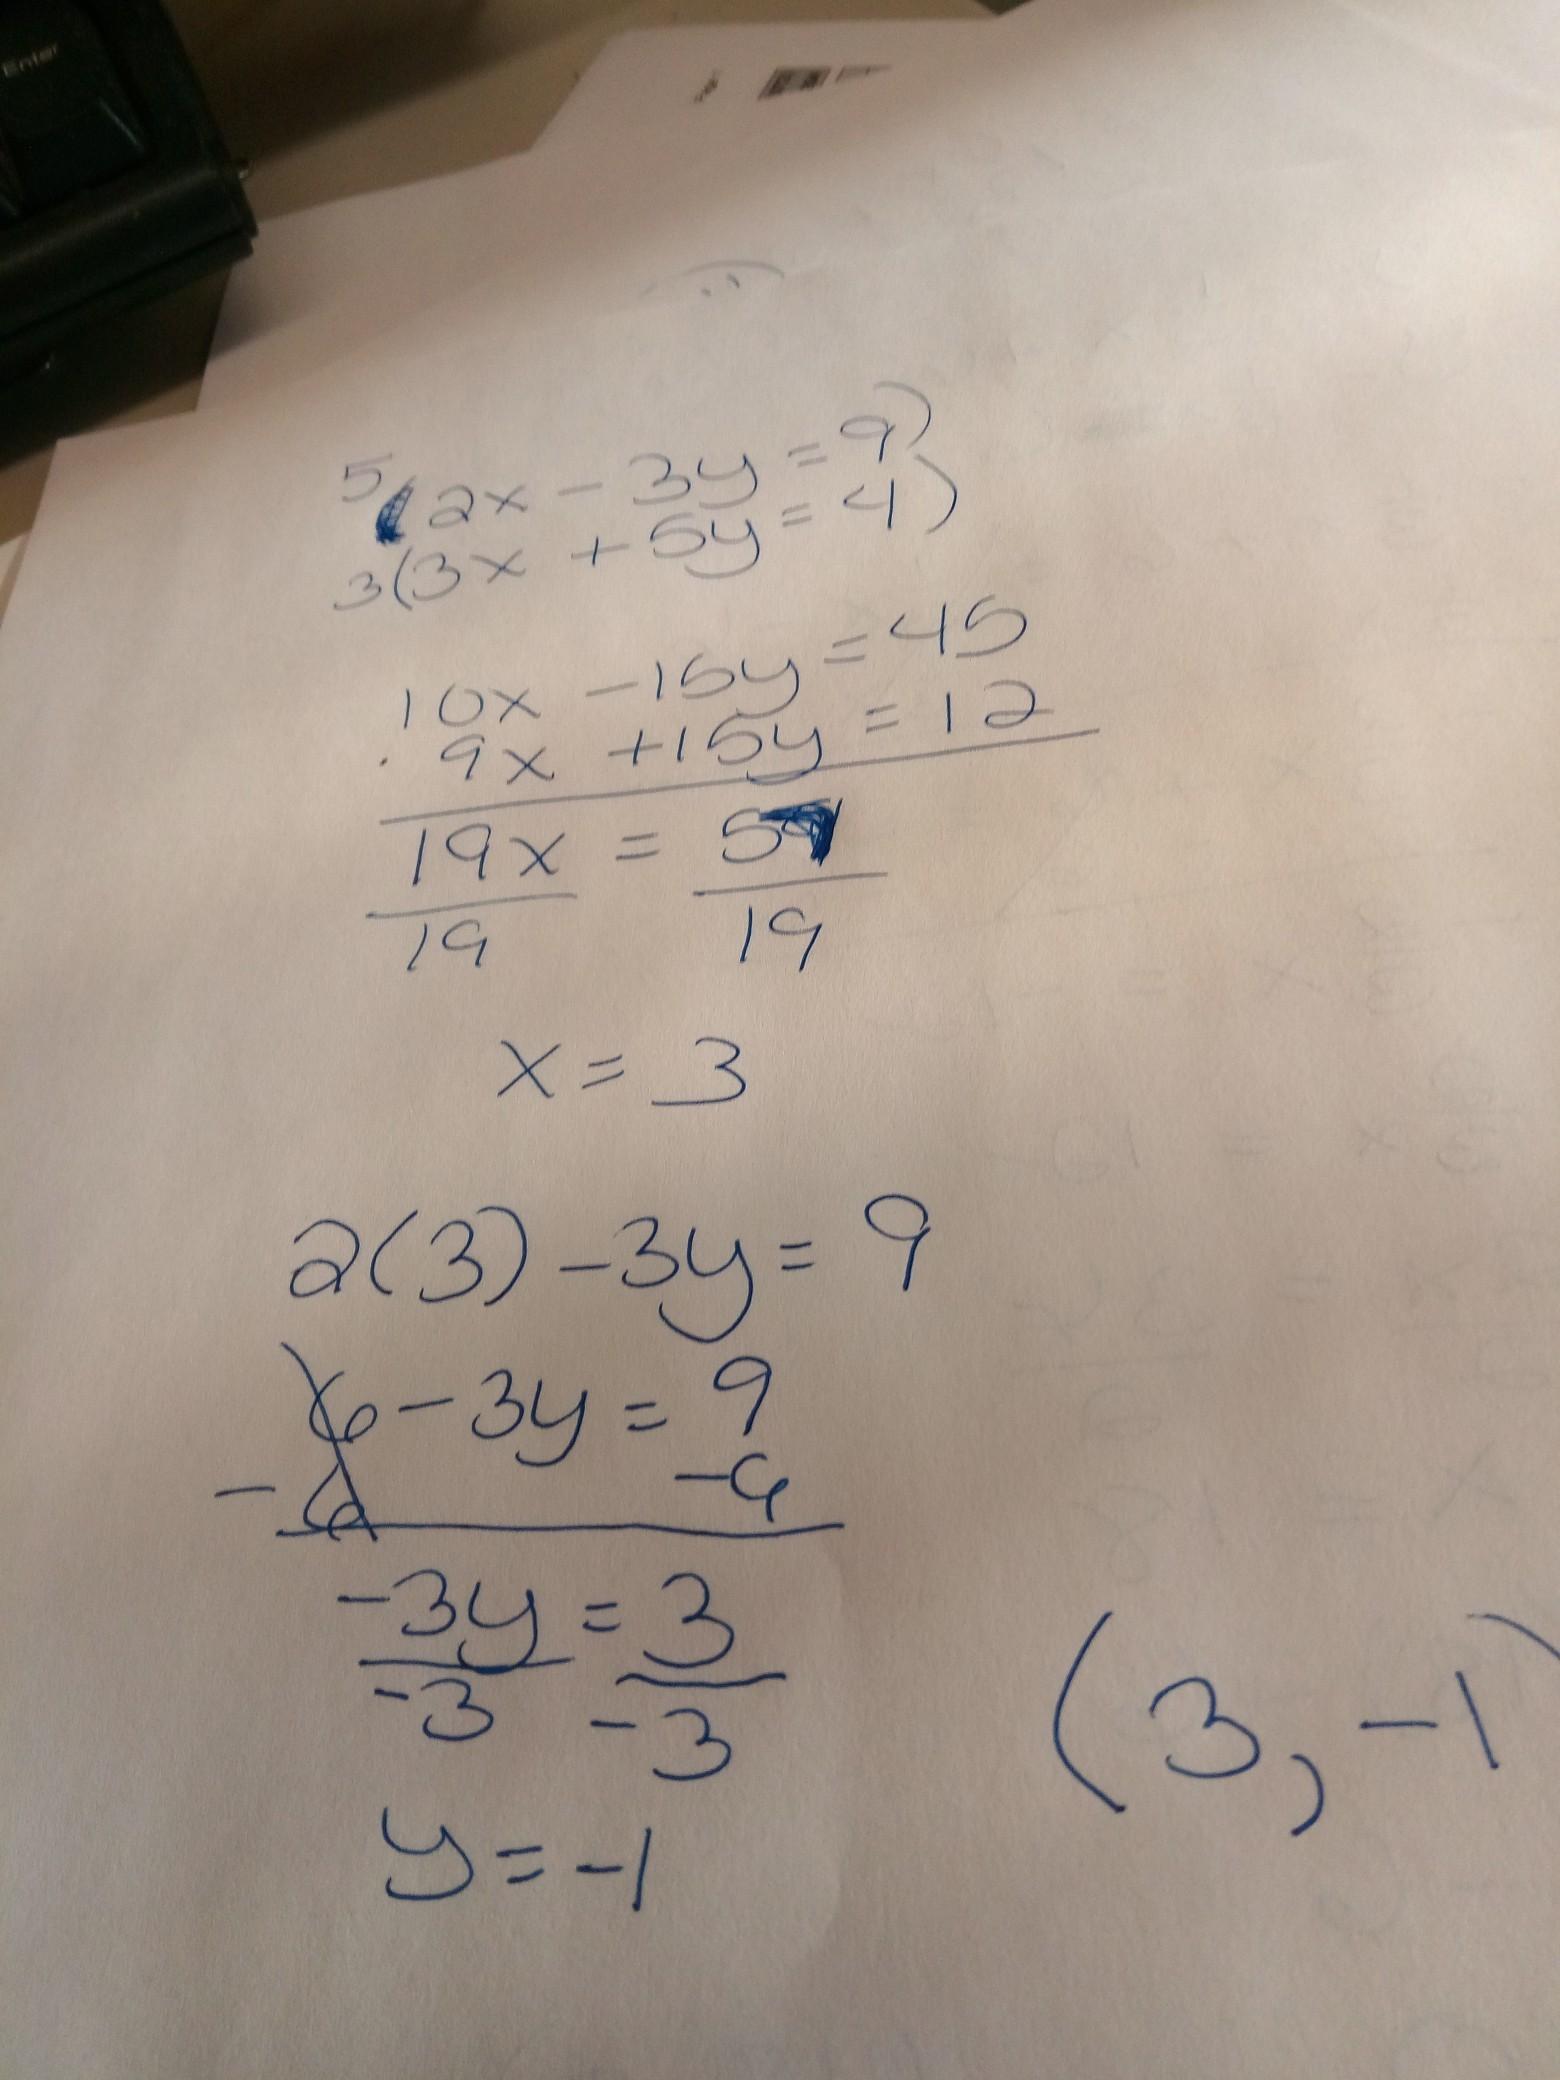 Enter
5(2x - 3y = 9)
3(3x + 5y = 4)
10x - 15y = 45
9x + 15y = 12
19x = 57
19 19
x = 3
2(3) - 3y = 9
6 - 3y = 9
- 6 - 6
-3y = 3
-3 -3
(3, -1)
y = -1